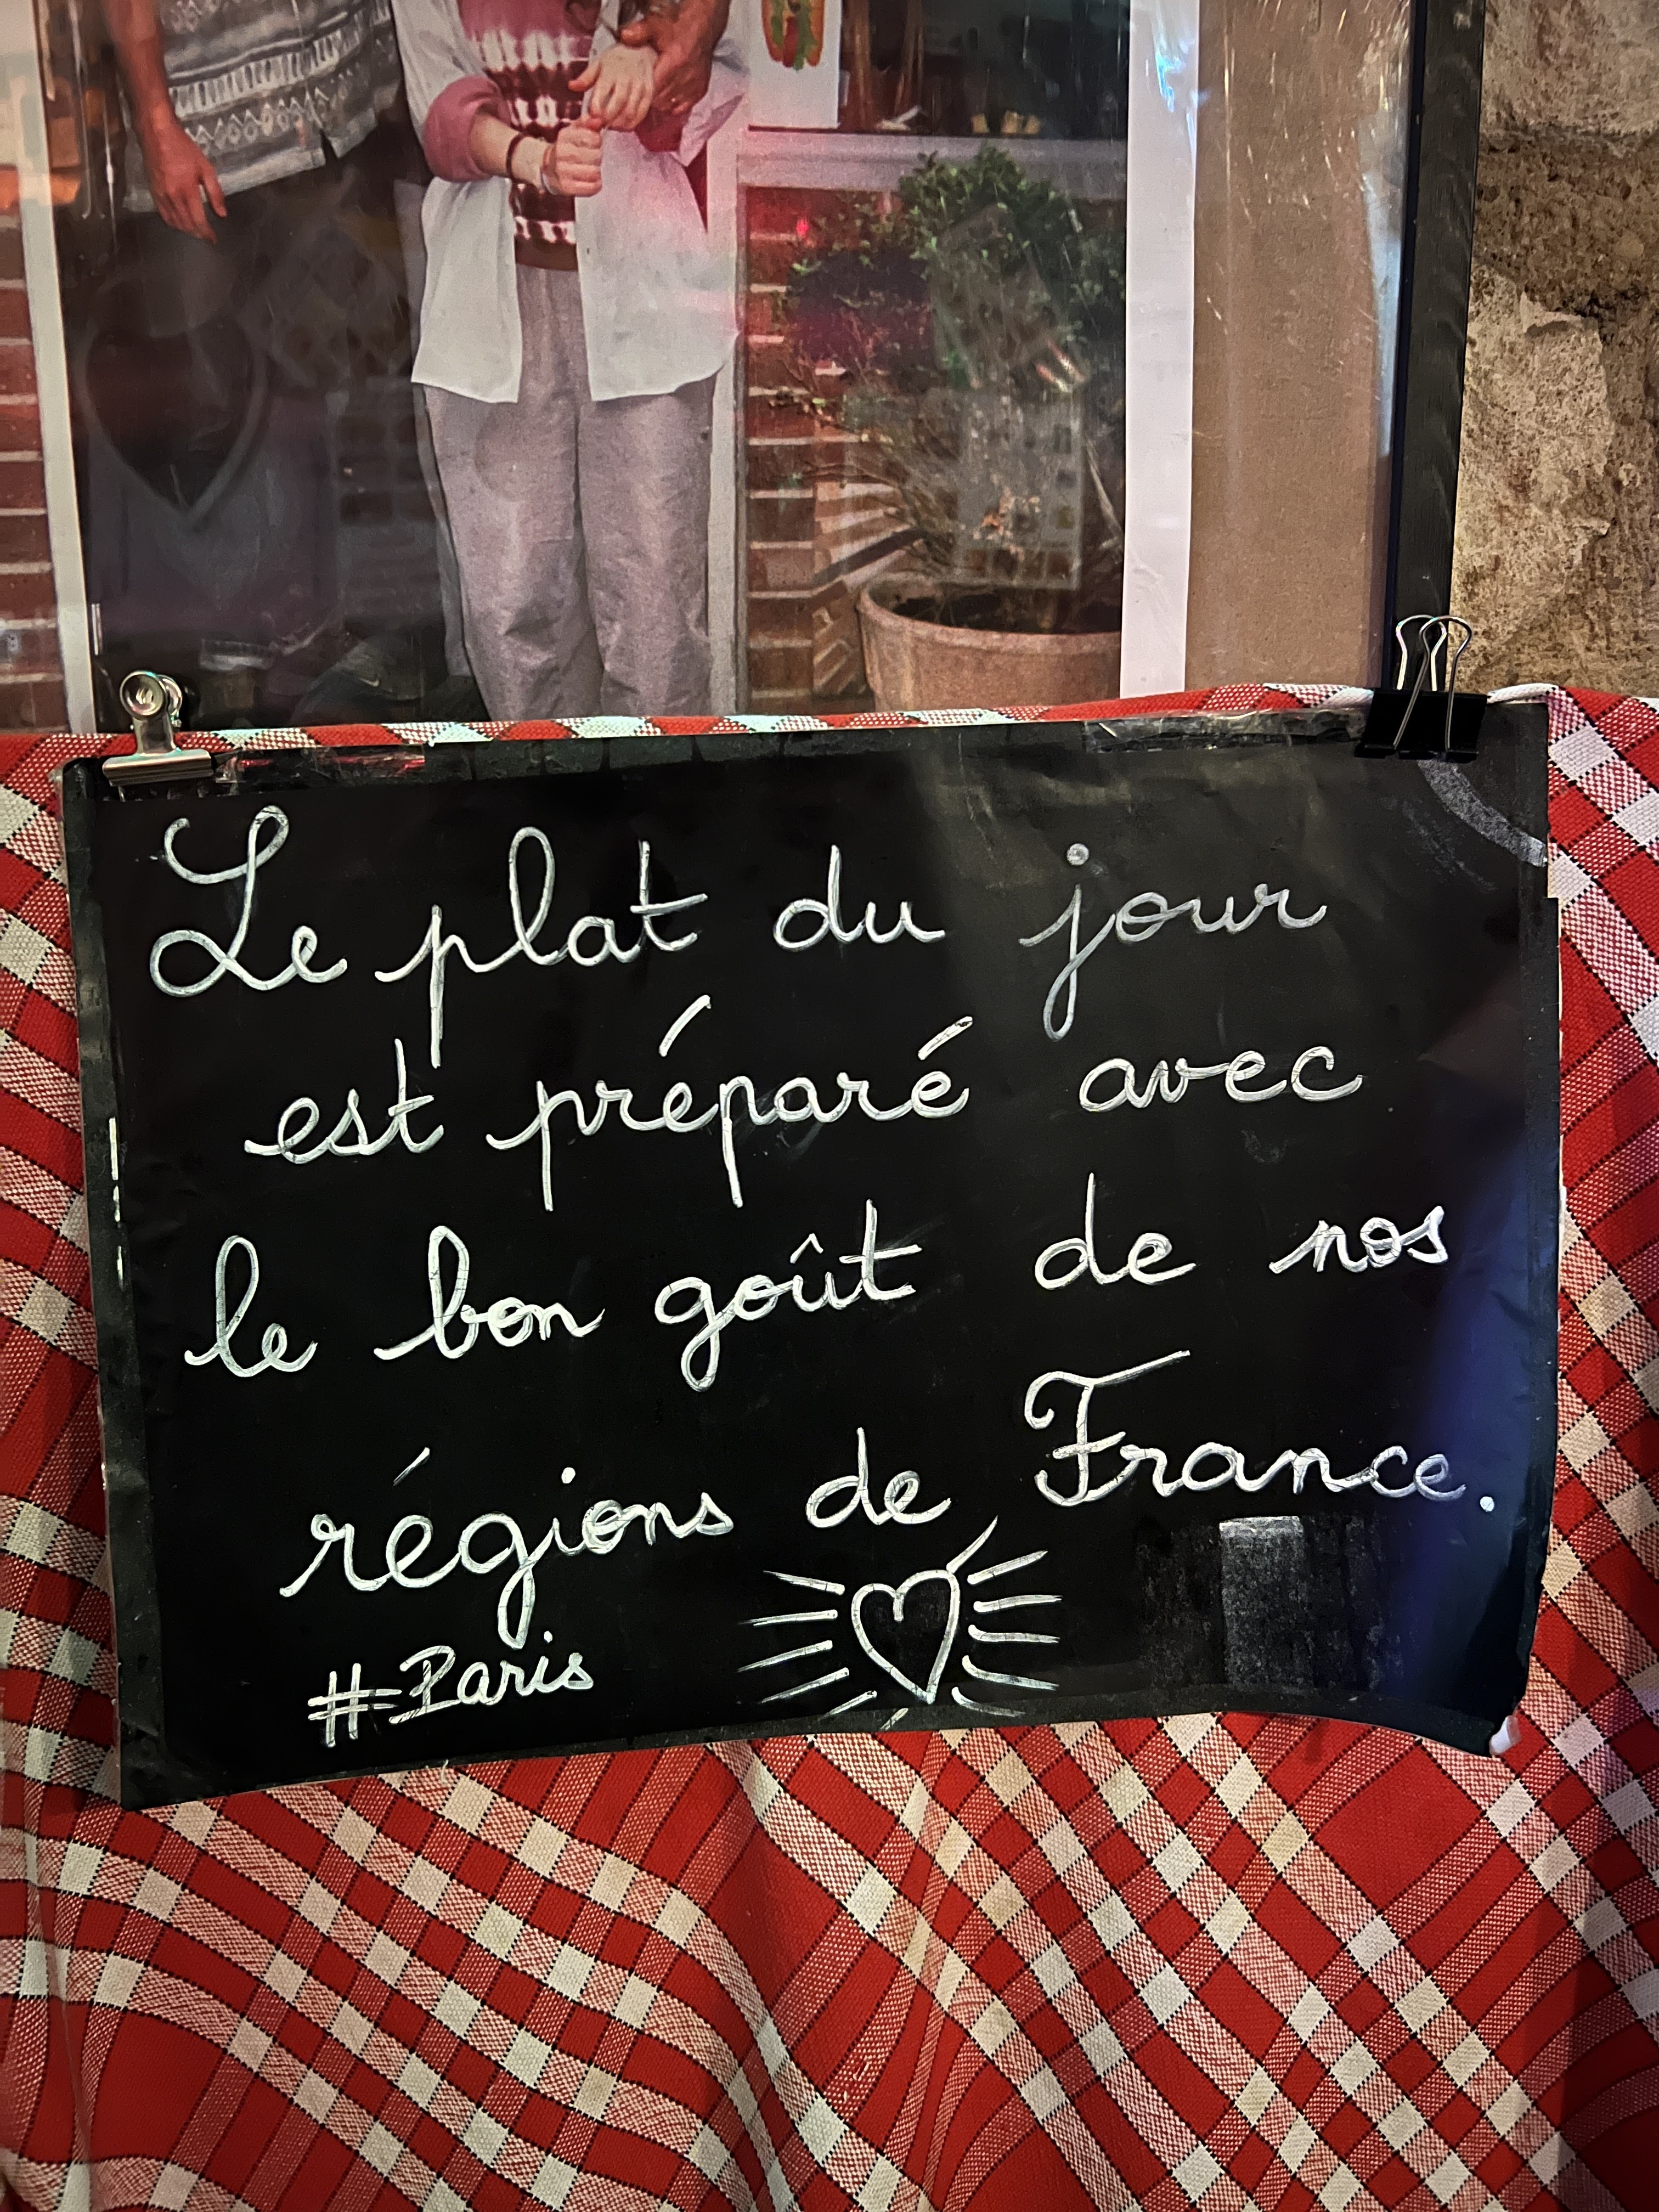 Le plat du jour
est préparé avec
le bon goût de nos
régions de France.
#Paris